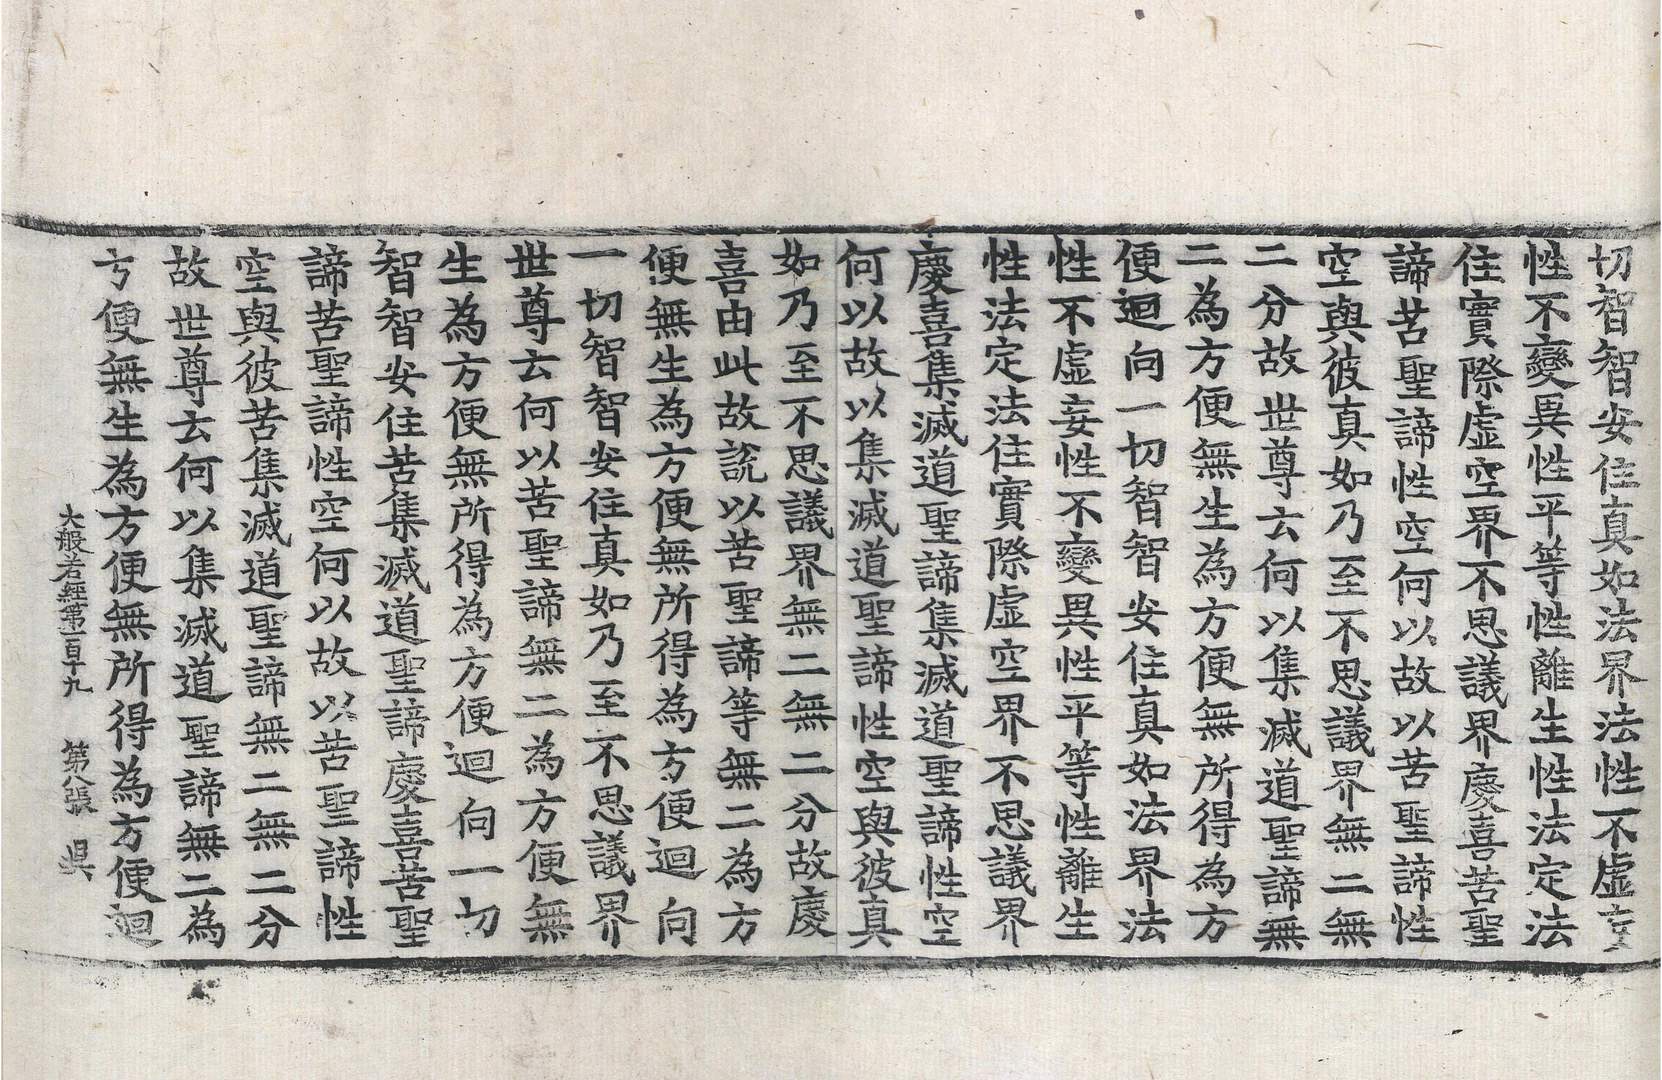 切智智安住真如法界法性不虛妄
性不變異性平等性離生性法定法
住實際虛空界不思議界慶喜苦聖
諦苦聖諦性空何以故以苦聖諦性
空與彼真如乃至不思議界無二無
二分故世尊云何以集滅道聖諦無
二為方便無生為方便無所得為方
便迴向一切智智安住真如法界法
性不虛妄性不變異性平等性離生
性法定法住實際虛空界不思議界
慶喜集滅道聖諦集滅道聖諦性空
何以故以集滅道聖諦性空與彼真
如乃至不思議界無二無二分故慶
喜由此故說以苦聖諦等無二為方
便無生為方便無所得為方便迴向
一切智智安住真如乃至不思議界
世尊云何以苦聖諦無二為方便無
生為方便無所得為方便迴向一切
智智安住苦集滅道聖諦慶喜苦聖
諦苦聖諦性空何以故以苦聖諦性
空與彼苦集滅道聖諦無二無二分
故世尊云何以集滅道聖諦無二為
方便無生為方便無所得為方便迴
大般若經第一百十九 第八張 昃